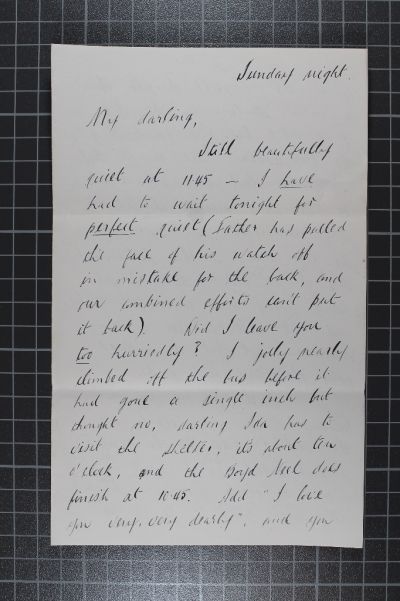 Sunday night.
My darling,
Still beautifully
quiet at 11.45 – I have
had to wait tonight for
perfect quiet (Father has pulled
the face of his watch off
in mistake for the back, and
our combined efforts can't put
it back). Did I leave you
too hurriedly? I jolly nearly
climbed off the bus before it
had gone a single inch but
thought no, darling Ida has to
visit the shelter, it's about ten
o'clock, and the Boyd Neel does
finish at 10.45. Add "I love
you very, very dearly", and you